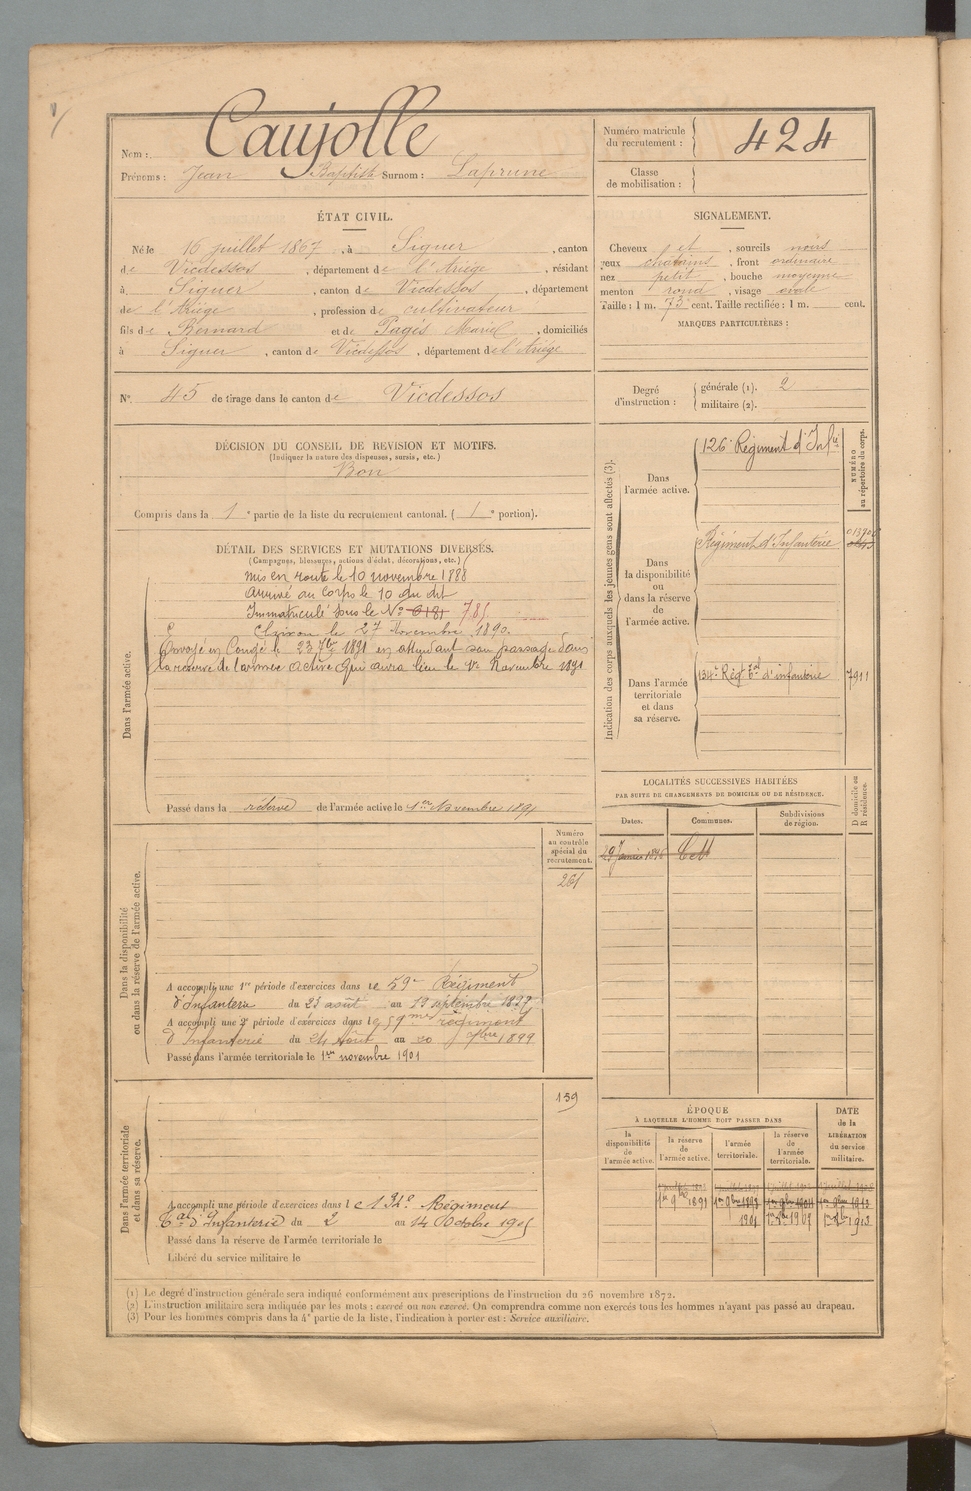 Nom : Caujolle
Prénoms : Jean Baptiste Surnom : Laprune
Numéro matricule du recrutement : 424
Classe de mobilisation :
ÉTAT CIVIL.
Né le 16 juillet 1867, à Siguer, canton
de Vicdessos, département de l'Ariège, résidant
à Siguer, canton de Vicdessos, département
de l'Ariège, profession de cultivateur
fils de Bernard et de Pagès Marie, domiciliés
à Siguer, canton de Vicdessos, département de l'Ariège
N° 45 de tirage dans le canton de Vicdessos
SIGNALEMENT.
Cheveux et, sourcils noirs
yeux chatains, front ordinaire
nez petit, bouche moyenne
menton rond, visage ovale
Taille : 1 m. 73 cent. Taille rectifiée : 1 m. cent.
MARQUES PARTICULIÈRES :
Degré d'instruction : générale (1). 2
militaire (2).
DÉCISION DU CONSEIL DE REVISION ET MOTIFS.
(Indiquer la nature des dispenses, sursis, etc.)
Bon
Compris dans la 1e partie de la liste du recrutement cantonal. ( 1e portion).
DÉTAIL DES SERVICES ET MUTATIONS DIVERSES.
(Campagnes, blessures, actions d'éclat, décorations, etc.)
Dans l'armée active.
Mis en route le 10 novembre 1888
Arrivé au corps le 10 du dit
Immatriculé sous le N° 6181 785
Clairon le 27 Novembre 1890.
Envoyé en Congé le 23 7bre 1891 en attendant son passage dans
la réserve de l'armée active qui aura lieu le 1er Novembre 1891
Passé dans la réserve de l'armée active le 1er Novembre 1891
Indication des corps auxquels les jeunes gens sont affectés (3).
NUMÉRO au répertoire du corps.
Dans l'armée active.
126e Régiment d'Infie
Dans la disponibilité ou dans la réserve de l'armée active.
Régiment d'Infanterie
Dans l'armée territoriale et dans sa réserve.
134e Régt Tal d'infanterie 7911
LOCALITÉS SUCCESSIVES HABITÉES
PAR SUITE DE CHANGEMENTS DE DOMICILE OU DE RÉSIDENCE.
Dates. Communes. Subdivisions de région. D domicile ou R résidence.
29 Janvier 1896 Cette
Dans la disponibilité ou dans la réserve de l'armée active.
Numéro au contrôle spécial du recrutement.
261
A accompli une 1re période d'exercices dans le 59e Régiment
d'Infanterie du 23 août au 19 septembre 1897
A accompli une 2e période d'exercices dans le 59me régiment
d'Infanterie du 24 Août au 20 7bre 1899
Passé dans l'armée territoriale le 1er novembre 1901
Dans l'armée territoriale et dans sa réserve.
139
A accompli une période d'exercices dans le 134e Régiment
Tal d'Infanterie du 2 au 14 Octobre 1905
Passé dans la réserve de l'armée territoriale le
Libéré du service militaire le
ÉPOQUE
À LAQUELLE L'HOMME DOIT PASSER DANS
la disponibilité de l'armée active. la réserve de l'armée active. l'armée territoriale. la réserve de l'armée territoriale.
DATE de la LIBÉRATION du service militaire.
1er 9bre 1891 1er 9bre 1897
1901
(1) Le degré d'instruction générale sera indiqué conformément aux prescriptions de l'instruction du 26 novembre 1872.
(2) L'instruction militaire sera indiquée par les mots : exercé ou non exercé. On comprendra comme non exercés tous les hommes n'ayant pas passé au drapeau.
(3) Pour les hommes compris dans la 4e partie de la liste, l'indication à porter est : Service auxiliaire.